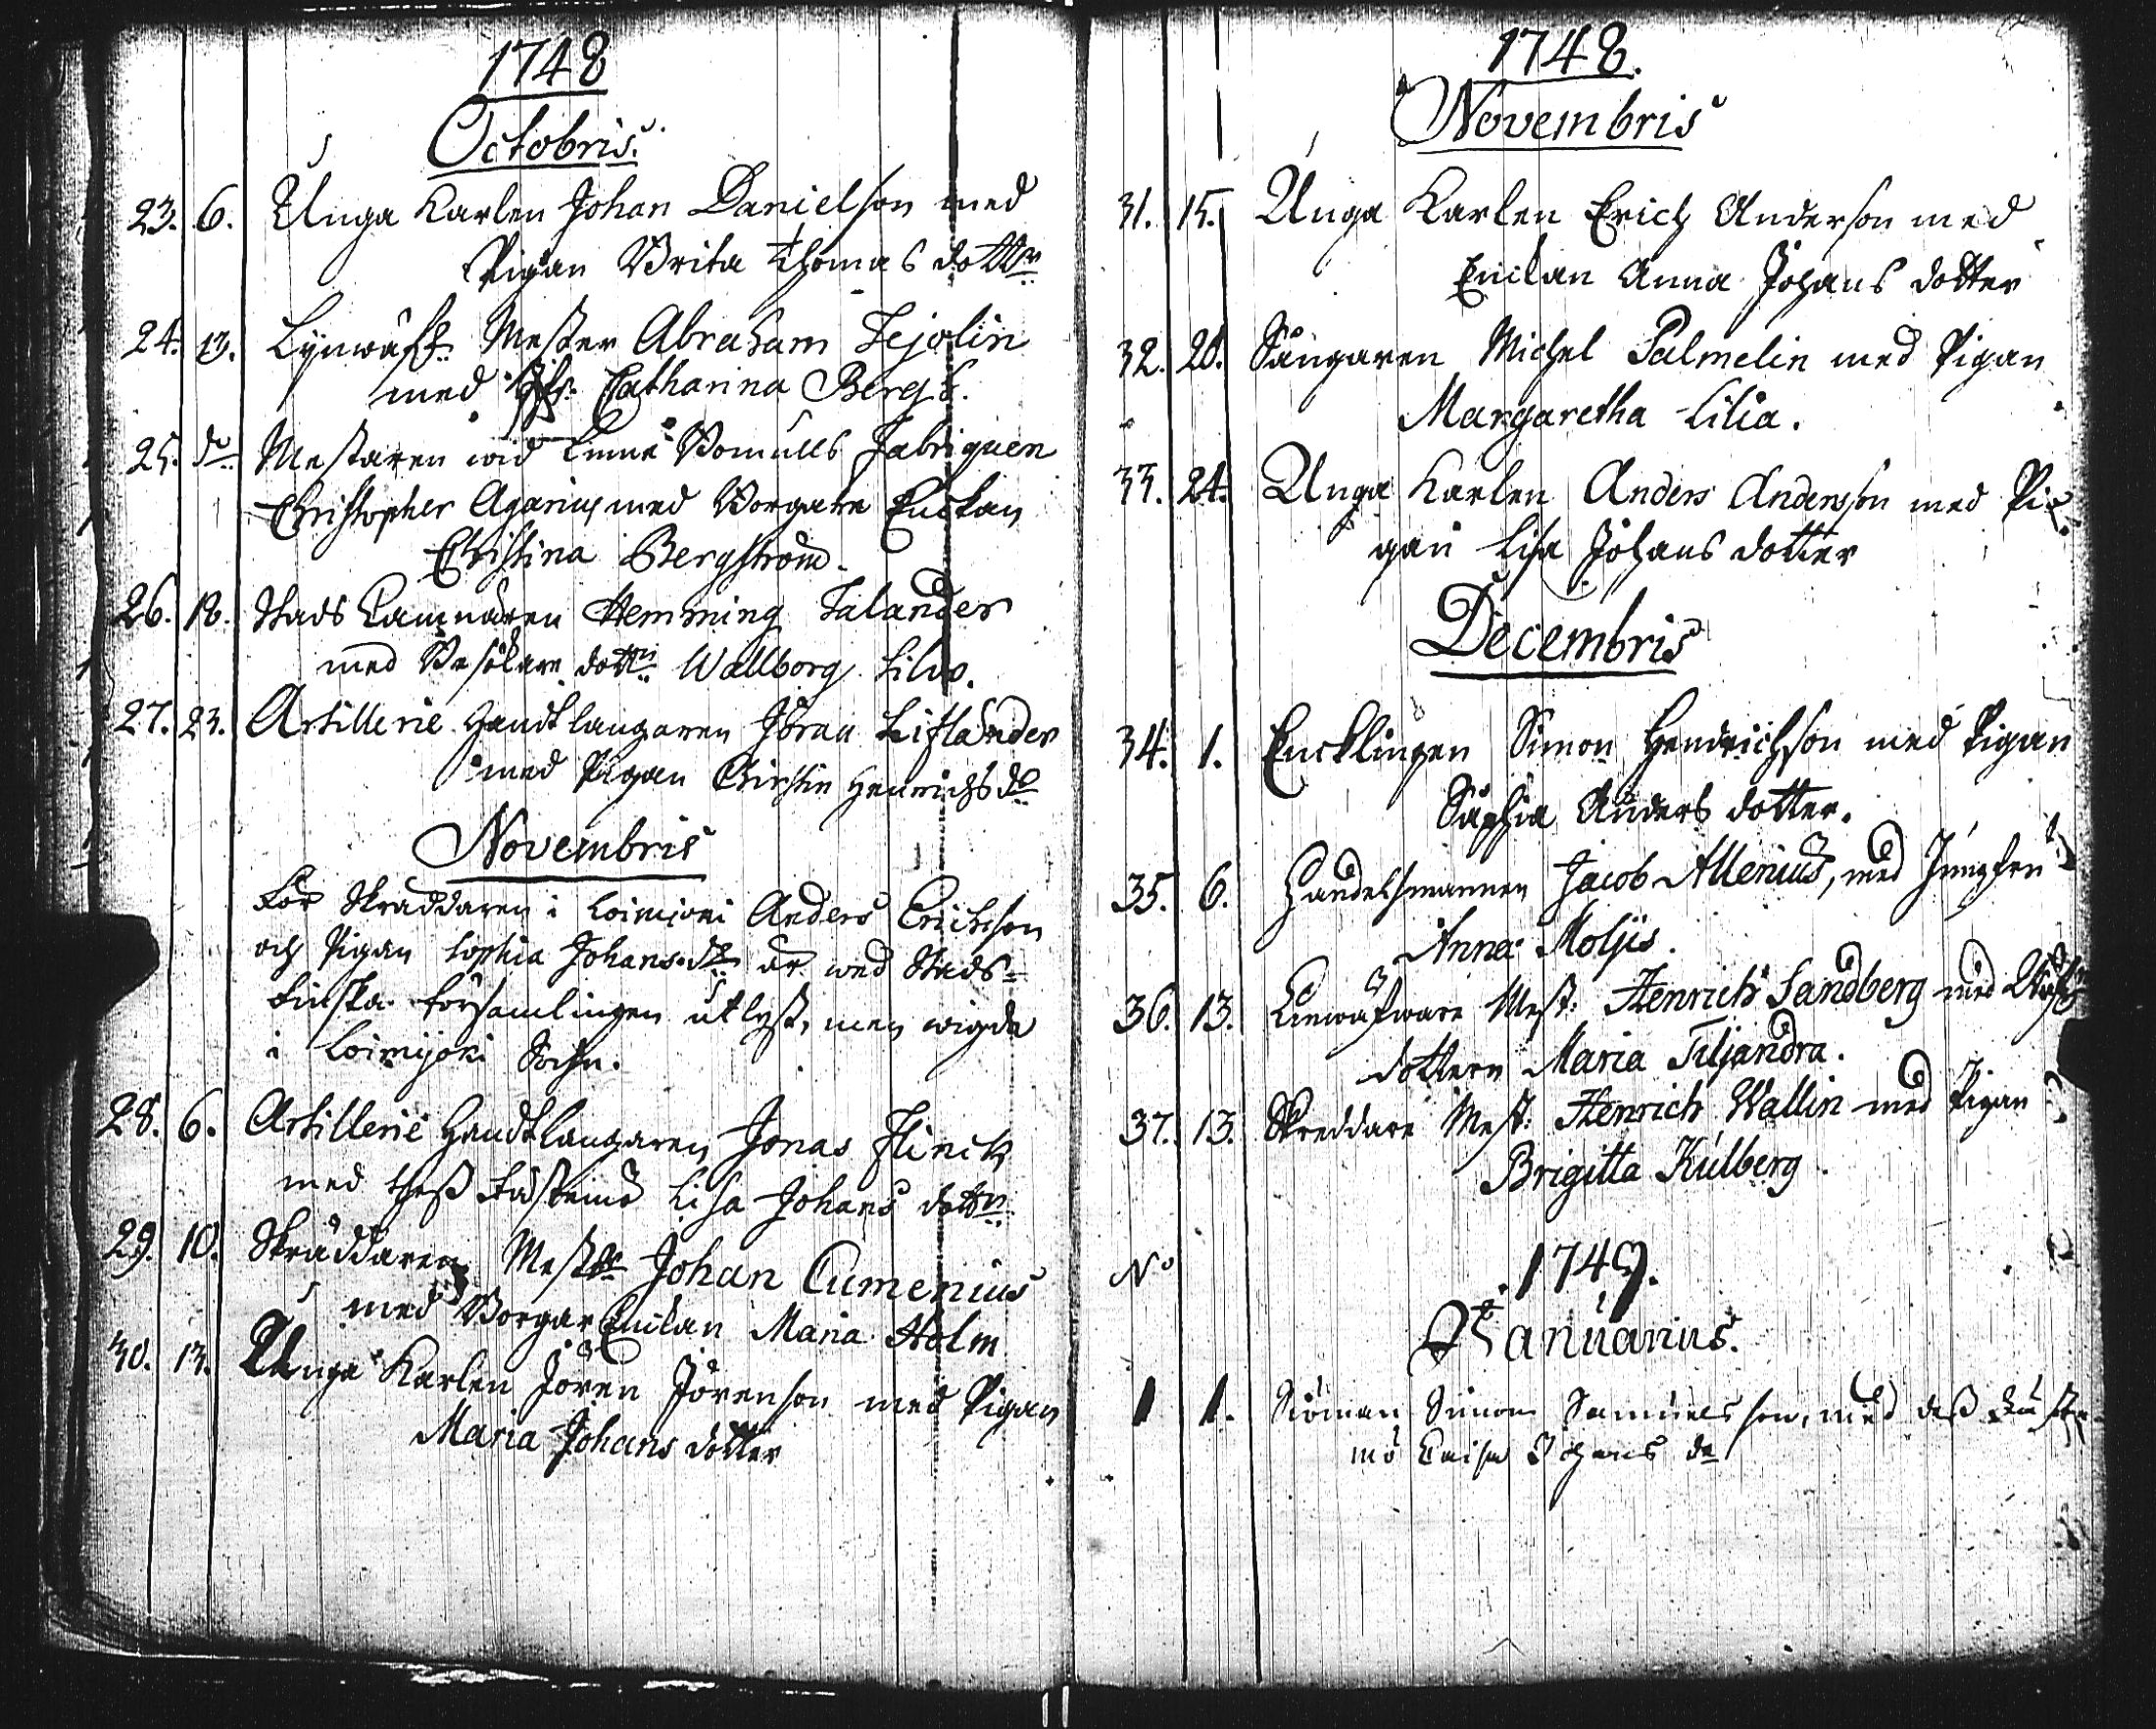 1748
Octobris.
23. 6. Unga Karlen Johan Danielson med
Pigan Brita Thomas dottr
24. 13. Lynwäf: Mester Abraham Tejolin
med Jfr: Catharina Bergs.
25. do Mestaren wid Linne Bomulls Fabriquen
Christopher Agarius med Borgare Enckan
Christina Bergström.
26. 18. Stads Camnären Hemming Salander
med Besökare dottr Wallborg Lilio.
27. 23. Artillerie Handtlangaren Jöran Liflander
med Pigan Christin Henrichs dr
Novembris
För Skräddaren i Loimjoki Anders Erichson
och Pigan Sophia Johans dr är wed Stads
Finska Församlingen utlyst, men wigda
i Loimijoki Sochn.
28. 6. Artillerie Handtlangaren Jonas Flinck
med thess Fästemö Lisa Johans dottr
29. 10. Skräddaren Mestr Johan Cumenius
med Borgar Enckan Maria Holm
30. 13. Unga Karlen Jören Jörenson med Pigan
Maria Johans dotter
1748.
Novembris
31. 15. Unga Karlen Erich Anderson med
Enckan Anna Johans dotter
32. 20. Sångaren Michel Palmelin med Pigan
Margaretha Lilia.
33. 24. Unga Karlen Anders Andersson med Pi-
gan Lisa Johans dotter
Decembris
34. 1. Encklingen Simon Hendrichson med Pigan
Sophia Anders dotter.
35. 6. Handelsmannen Jacob Allenius, med Jungfru
Anna Moljis.
36. 13. Linwäfware Mest: Henrich Sandberg med
dottern Maria Tiljandra.
37. 13. Skreddare Mest: Henrich Wallin med Pigan
Brigitta Kulberg.
No 1749.
Januarius.
1 1. Siöman Simon Samuelsson, med dess Fäste
mö Caisa Johans dr